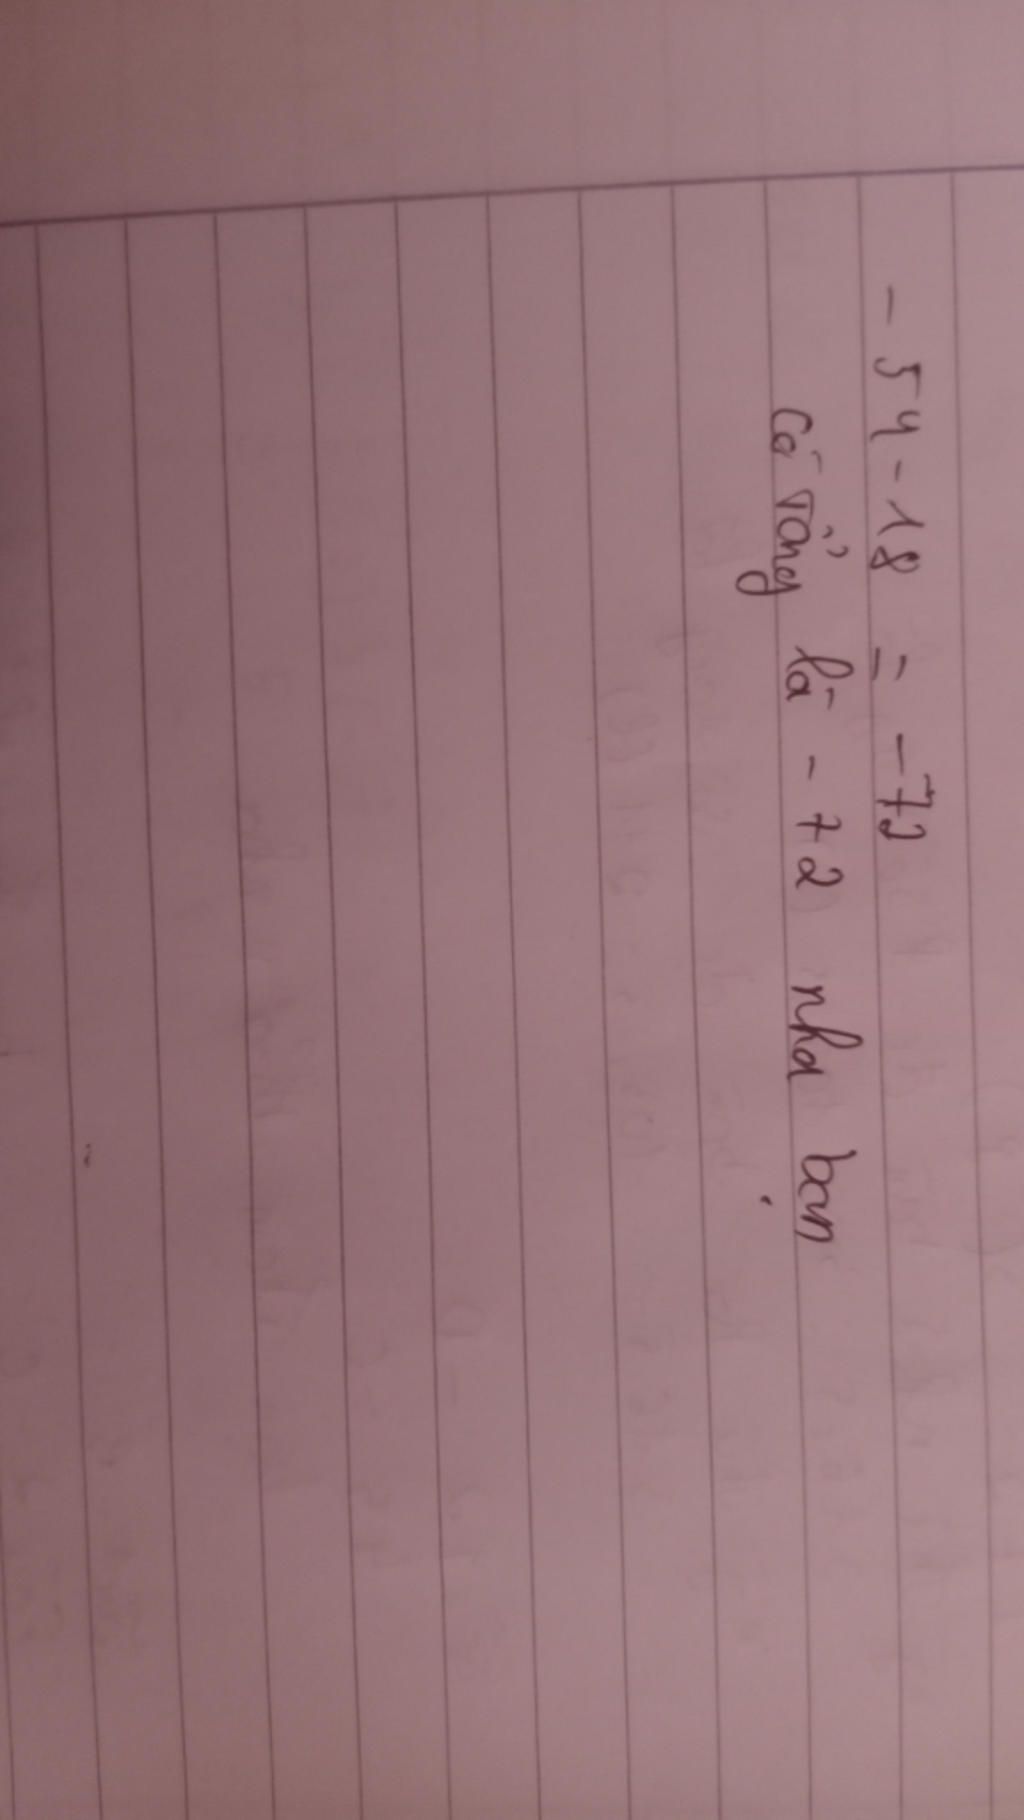 - 54 - 18 = -72
Có tổng là - 72 nha bạn